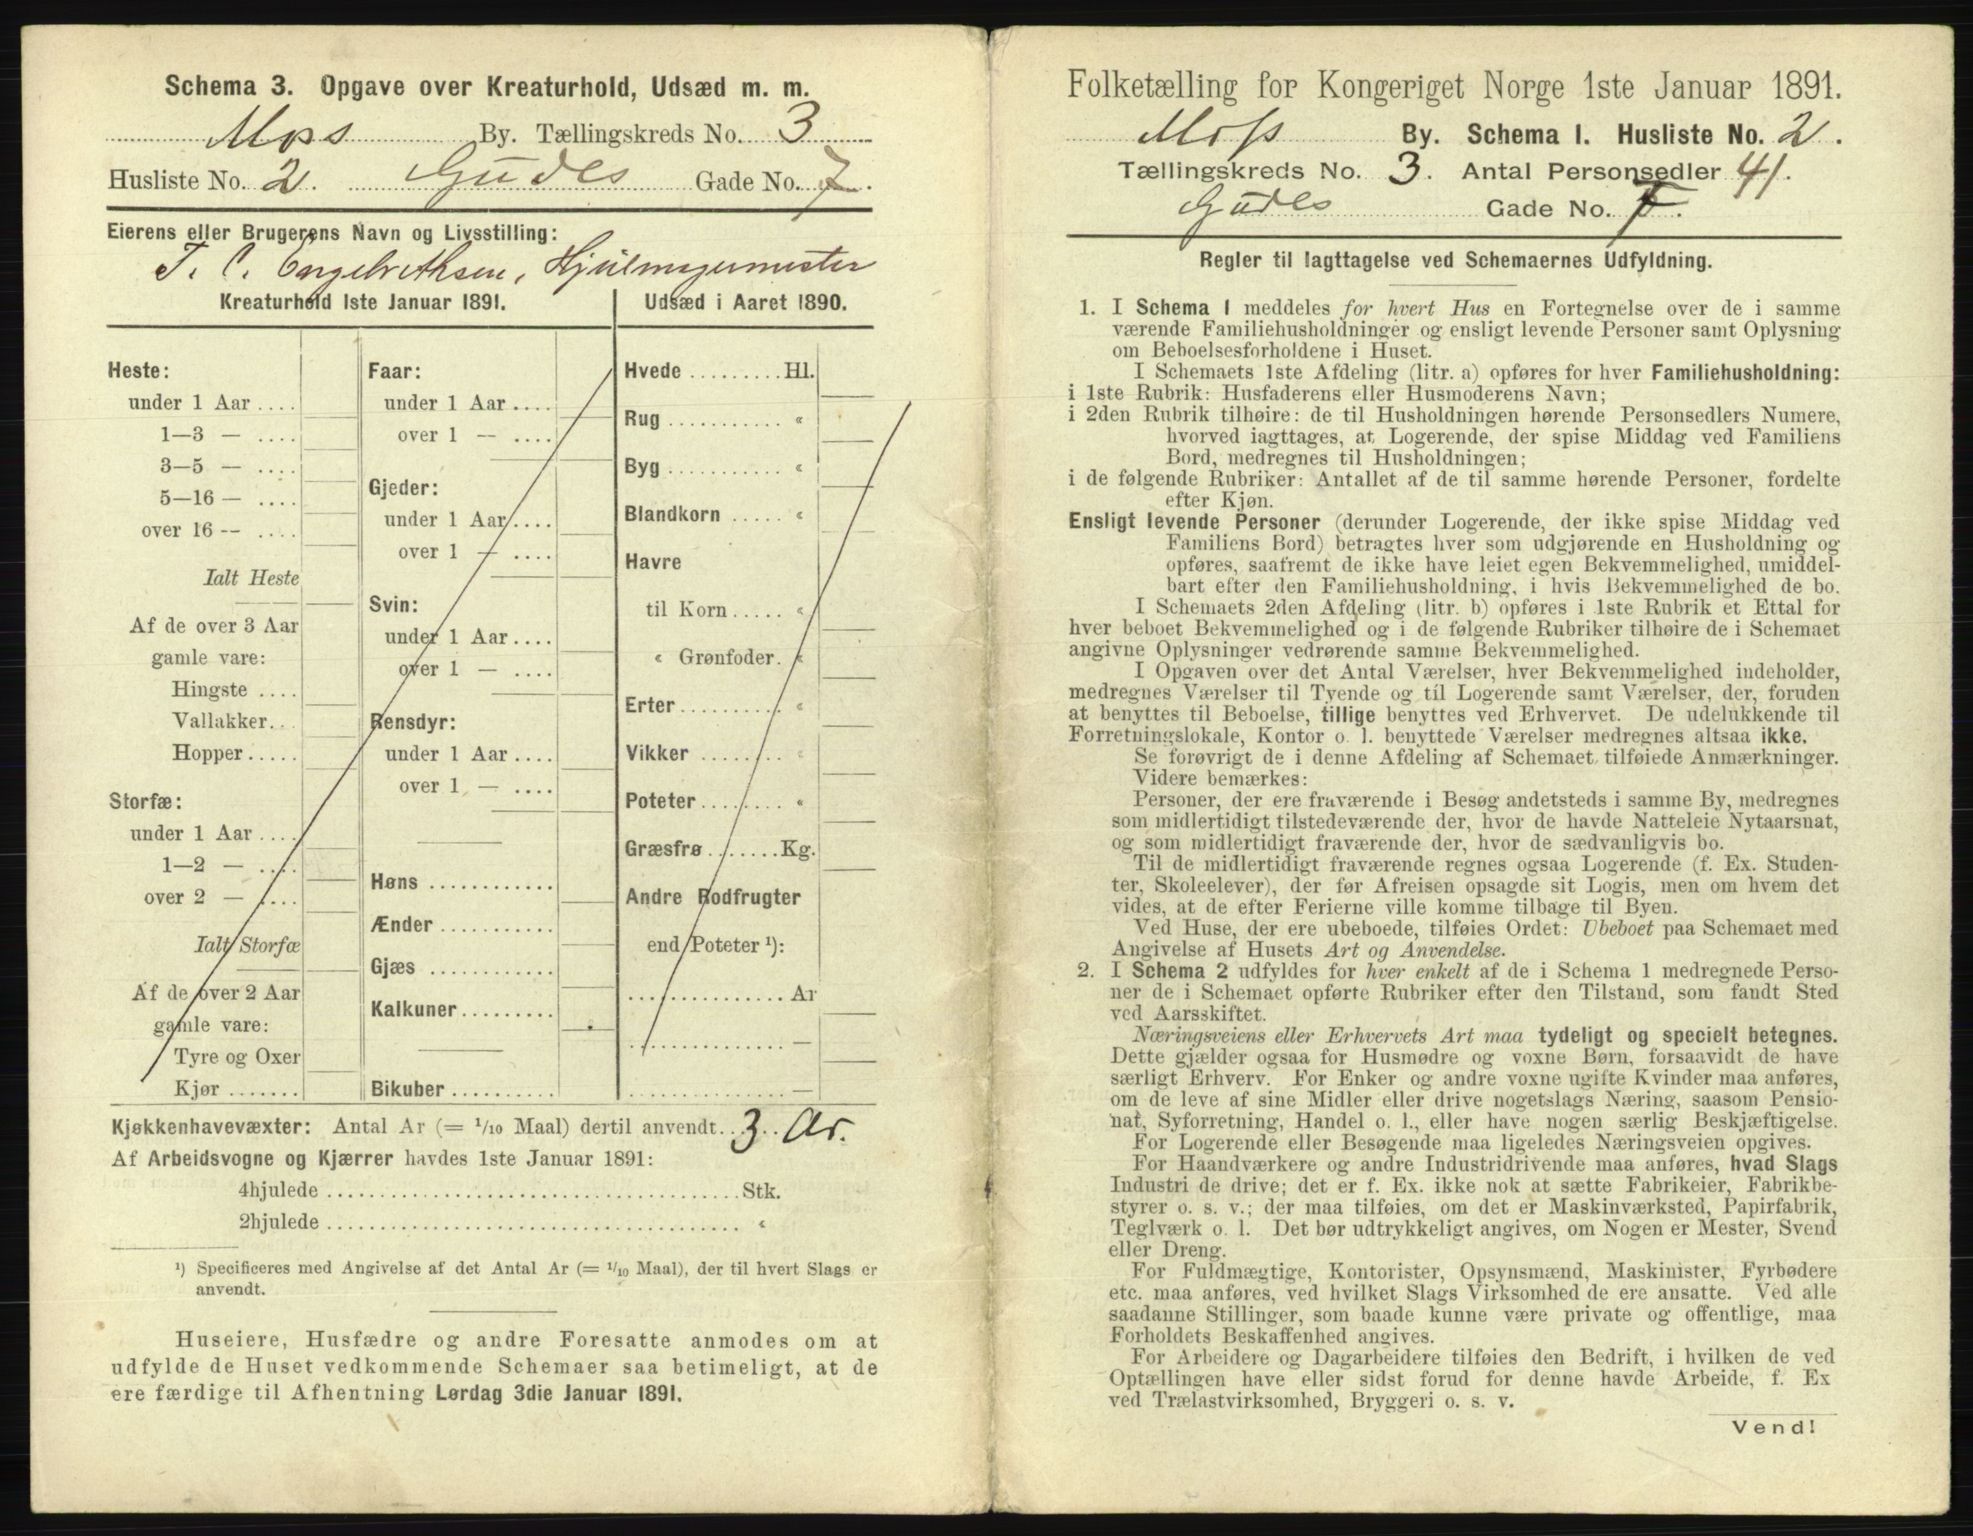 Schema 3. Opgave over Kreaturhold, Udsæd m. m.
Moss By. Tællingskreds No. 3
Husliste No. 2. Gudes Gade No. 7.
Eierens eller Brugerens Navn og Livsstilling:
T. C. Engebrethsen, Hjulmagermester
Kreaturhold 1ste Januar 1891.
Heste:
under 1 Aar ....
1—3 — ....
3—5 — ....
5—16 — ....
over 16 — ....
Ialt Heste
Af de over 3 Aar
gamle vare:
Hingste ....
Vallakker...
Hopper.....
Storfæ:
under 1 Aar ....
1—2 — ....
over 2 — ....
Ialt Storfæ
Af de over 2 Aar
gamle vare:
Tyre og Oxer
Kjør .......
Faar:
under 1 Aar ....
over 1 — ....
Gjeder:
under 1 Aar ....
over 1 — ....
Svin:
under 1 Aar ....
over 1 — ....
Rensdyr:
under 1 Aar ....
over 1 — ....
Høns ............
Ænder ...........
Gjæs ............
Kalkuner.........
Bikuber ..........
Udsæd i Aaret 1890.
Hvede .........Hl.
Rug ........... «
Byg ........... «
Blandkorn ..... «
Havre
til Korn ..... «
« Grønfoder. «
Erter......... «
Vikker ........ «
Poteter........ «
Græsfrø .......Kg.
Andre Rodfrugter
end Poteter ¹):
...............Ar
............... —
............... —
Kjøkkenhavevæxter: Antal Ar (= 1/10 Maal) dertil anvendt 3 Ar.
Af Arbeidsvogne og Kjærrer havdes 1ste Januar 1891:
4hjulede ........................................Stk.
2hjulede ........................................ «
¹) Specificeres med Angivelse af det Antal Ar (= 1/10 Maal), der til hvert Slags er
anvendt.
Huseiere, Husfædre og andre Foresatte anmodes om at
udfylde de Huset vedkommende Schemaer saa betimeligt, at de
ere færdige til Afhentning Lørdag 3die Januar 1891.
Folketælling for Kongeriget Norge 1ste Januar 1891.
Moss By. Schema I. Husliste No. 2.
Tællingskreds No. 3. Antal Personsedler 41.
Gudes Gade No. 7.
Regler til Iagttagelse ved Schemaernes Udfyldning.
1. I Schema I meddeles for hvert Hus en Fortegnelse over de i samme
værende Familiehusholdninger og ensligt levende Personer samt Oplysning
om Beboelsesforholdene i Huset.
I Schemaets 1ste Afdeling (litr. a) opføres for hver Familiehusholdning:
i 1ste Rubrik: Husfaderens eller Husmoderens Navn;
i 2den Rubrik tilhøire: de til Husholdningen hørende Personsedlers Numere,
hvorved iagttages, at Logerende, der spise Middag ved Familiens
Bord, medregnes til Husholdningen;
i de følgende Rubriker: Antallet af de til samme hørende Personer, fordelte
efter Kjøn.
Ensligt levende Personer (derunder Logerende, der ikke spise Middag ved
Familiens Bord) betragtes hver som udgjørende en Husholdning og
opføres, saafremt de ikke have leiet egen Bekvemmelighed, umiddel-
bart efter den Familiehusholdning, i hvis Bekvemmelighed de bo.
I Schemaets 2den Afdeling (litr. b) opføres i 1ste Rubrik et Ettal for
hver beboet Bekvemmelighed og i de følgende Rubriker tilhøire de i Schemaet
angivne Oplysninger vedrørende samme Bekvemmelighed.
I Opgaven over det Antal Værelser, hver Bekvemmelighed indeholder,
medregnes Værelser til Tyende og til Logerende samt Værelser, der, foruden
at benyttes til Beboelse, tillige benyttes ved Erhvervet. De udelukkende til
Forretningslokale, Kontor o. l. benyttede Værelser medregnes altsaa ikke.
Se forøvrigt de i denne Afdeling af Schemaet tilføiede Anmærkninger.
Videre bemærkes:
Personer, der ere fraværende i Besøg andetsteds i samme By, medregnes
som midlertidigt tilstedeværende der, hvor de havde Natteleie Nytaarsnat,
og som midlertidigt fraværende der, hvor de sædvanligvis bo.
Til de midlertidigt fraværende regnes ogsaa Logerende (f. Ex. Studen-
ter, Skoleelever), der før Afreisen opsagde sit Logis, men om hvem det
vides, at de efter Ferierne ville komme tilbage til Byen.
Ved Huse, der ere ubeboede, tilføies Ordet: Ubeboet paa Schemaet med
Angivelse af Husets Art og Anvendelse.
2. I Schema 2 udfyldes for hver enkelt af de i Schema 1 medregnede Perso-
ner de i Schemaet opførte Rubriker efter den Tilstand, som fandt Sted
ved Aarsskiftet.
Næringsveiens eller Erhvervets Art maa tydeligt og specielt betegnes.
Dette gjælder ogsaa for Husmødre og voxne Børn, forsaavidt de have
særligt Erhverv. For Enker og andre voxne ugifte Kvinder maa anføres,
om de leve af sine Midler eller drive nogetslags Næring, saasom Pensio-
nat, Syforretning, Handel o. l., eller have nogen særlig Beskjæftigelse.
For Logerende eller Besøgende maa ligeledes Næringsveien opgives.
For Haandværkere og andre Industridrivende maa anføres, hvad Slags
Industri de drive; det er f. Ex. ikke nok at sætte Fabrikeier, Fabrikbe-
styrer o. s. v.; der maa tilføies, om det er Maskinværksted, Papirfabrik,
Teglværk o. l. Det bør udtrykkeligt angives, om Nogen er Mester, Svend
eller Dreng.
For Fuldmægtige, Kontorister, Opsynsmænd, Maskinister, Fyrbødere
etc. maa anføres, ved hvilket Slags Virksomhed de ere ansatte. Ved alle
saadanne Stillinger, som baade kunne være private og offentlige, maa
Forholdets Beskaffenhed angives.
For Arbeidere og Dagarbeidere tilføies den Bedrift, i hvilken de ved
Optællingen have eller sidst forud for denne havde Arbeide, f. Ex
ved Trælastvirksomhed, Bryggeri o. s. v.
Vend!